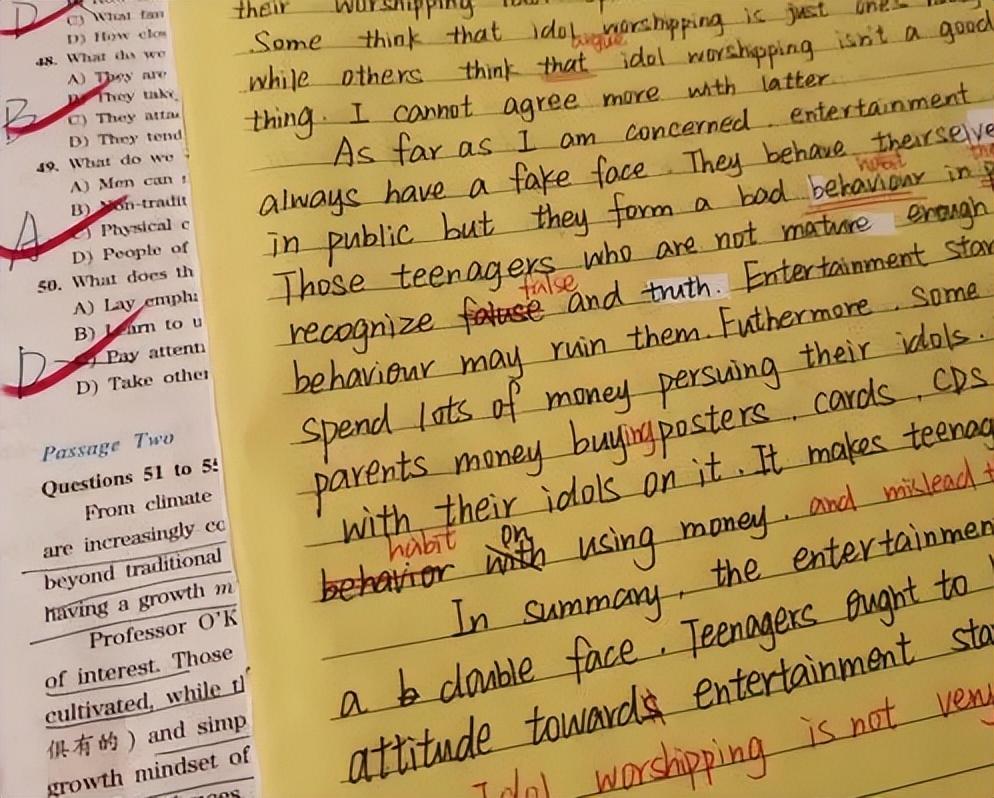 C) What fan
D) How clos
48. What do we
A) They are
B) They take
C) They atta
D) They tend
49. What do we
A) Men can
B) Non-tradit
C) Physical c
D) People of
50. What does th
A) Lay empha
B) Learn to u
C) Pay attenti
D) Take other
D
B
A
D
Passage Two
Questions 51 to 55
From climate
are increasingly co
beyond traditional
having a growth m
Professor O'K
of interest. Those
cultivated, while tl
俱有的 ) and simp
growth mindset of
their worshipping
Some think that idol worshipping is just one
argue
while others think that idol worshipping isn't a good
thing. I cannot agree more with latter.
As far as I am concerned, entertainment
always have a fake face. They behave theirselve
habit
in public but they form a bad behaviour in
Those teenagers who are not mature enough
false
recognize faluse and truth. Entertainment star
behaviour may ruin them. Futhermore, some
spend lots of money persuing their idols.
parents money buying posters, cards, CDS
with their idols on it. It makes teenag
habit on
behavior with using money. and mislead t
In summary, the entertainmen
a b double face. Teenagers ought to
attitude towards entertainment sta
Idol worshipping is not very